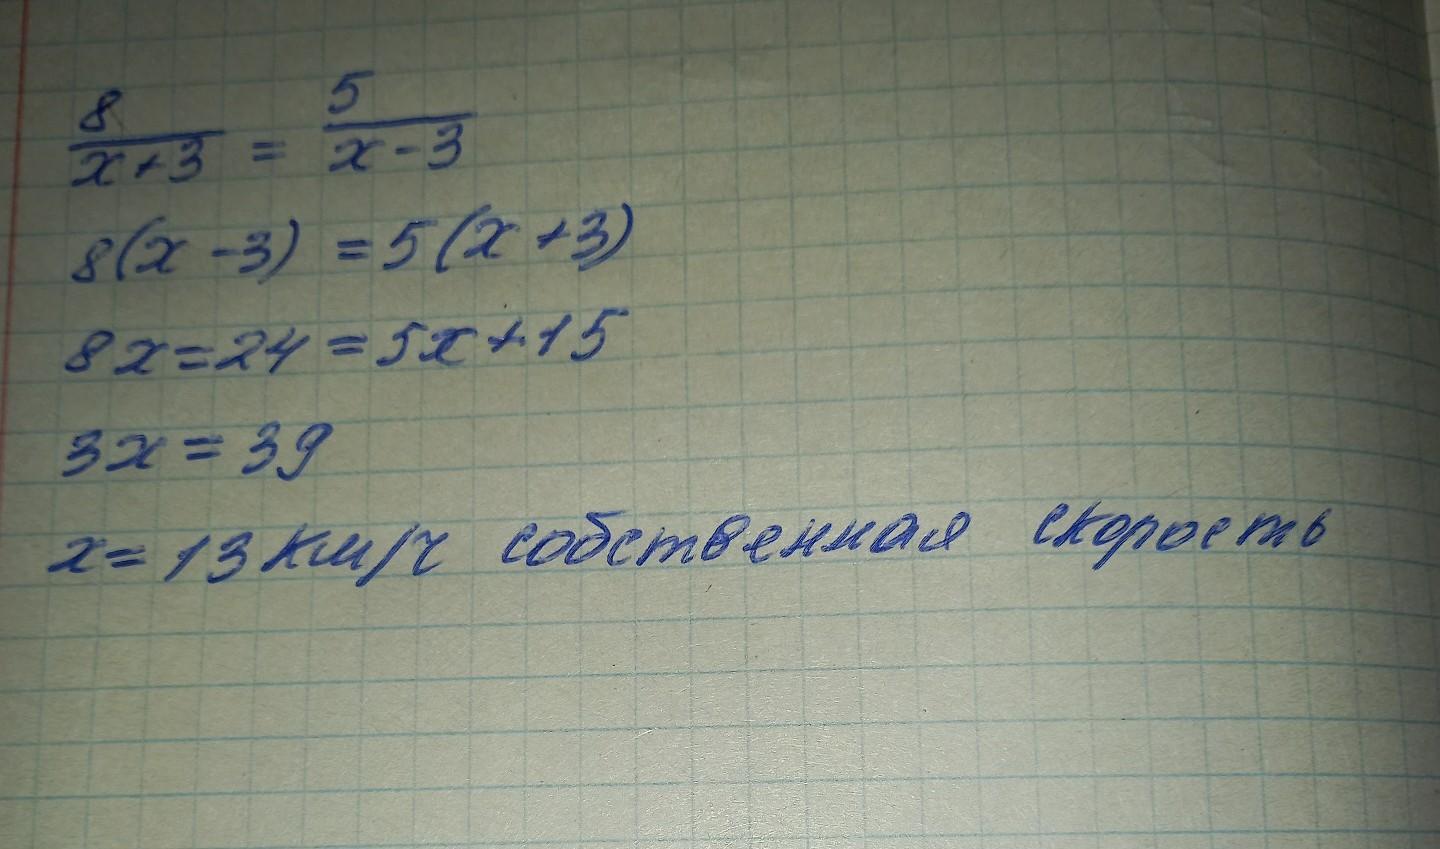 8/(x+3) = 5/(x-3)
8(x-3) = 5(x+3)
8x=24=5x+15
3x=39
x=13 км/ч собственная скорость